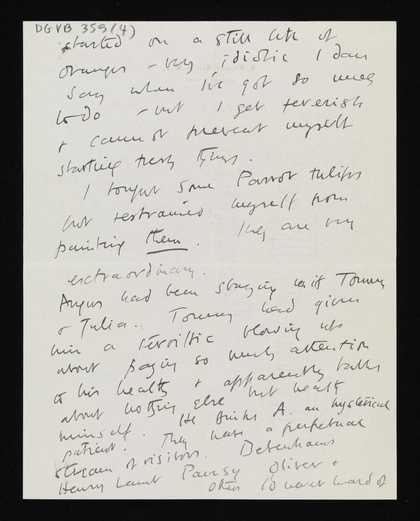 DGVB 359(4)
started on a still life of
oranges – very idiotic I dare
say when I've got so much
to do – but I get feverish
& cannot prevent myself
starting fresh things.
I bought some Parrot tulips
but restrained myself from
painting them. They are very
extraordinary.
Angus had been staying with Tommy
& Julia. Tommy had given
him a terriffic blowing up
about paying so much attention
to his health & apparently talks
about nothing else but health
himself. He thinks A. an hysterical
patient. They have a perpetual
stream of visitors. Debenhams
Henry Lamb Pansy Oliver &
others to heard of